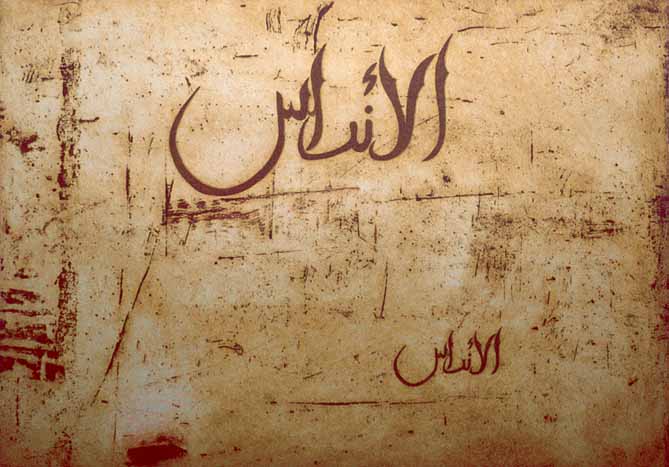 الأندلس
الأندلس